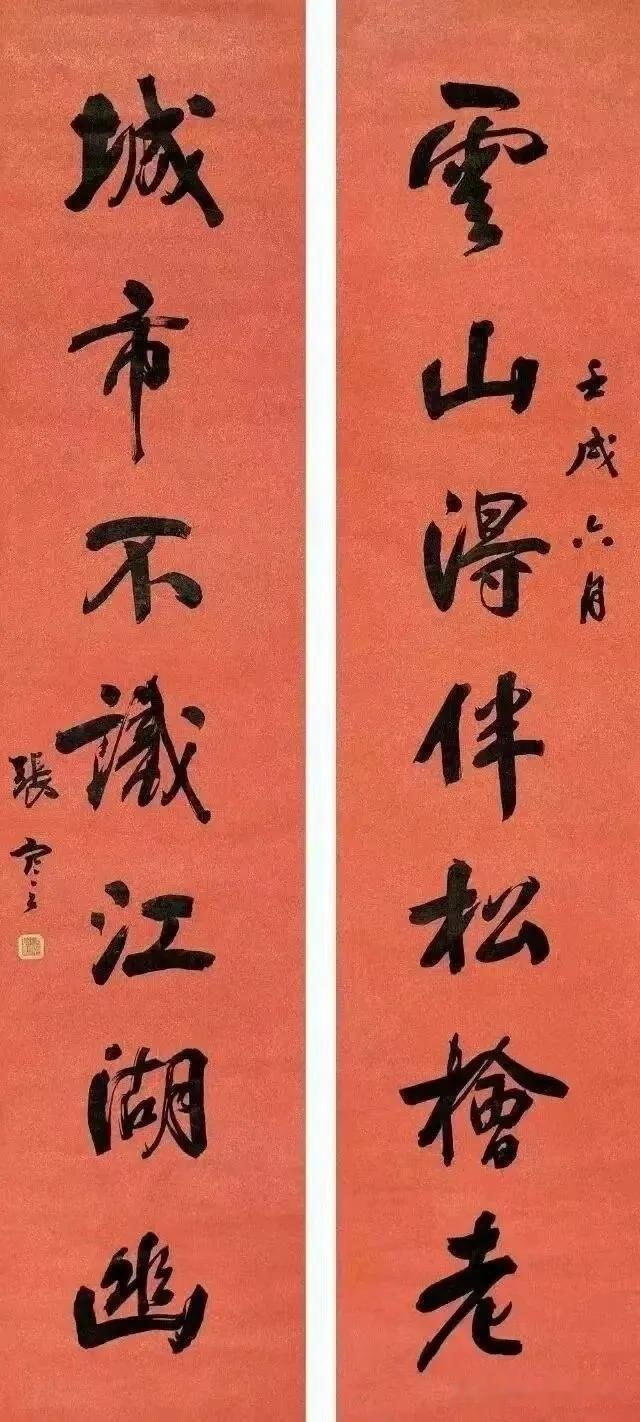 雲山得伴松檜老
壬戌六月
城市不識江湖幽
張謇